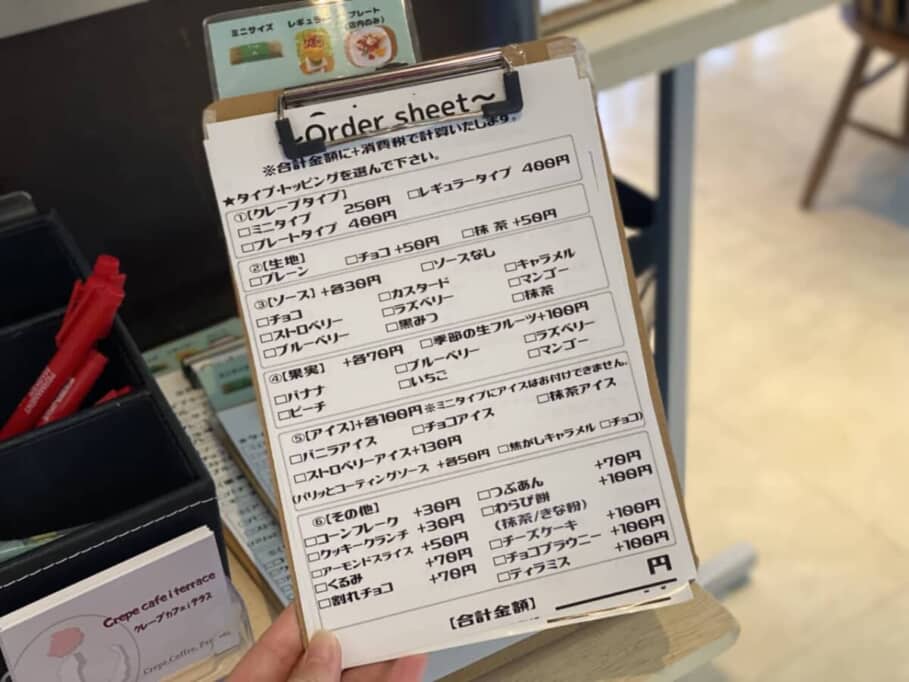 ミニサイズ
レギュラー
プレート
(店内のみ)
~Order sheet~
※合計金額に+消費税で計算いたします。
★タイプ・トッピングを選んで下さい。
①[クレープタイプ]
□ミニタイプ 250円 □レギュラータイプ 400円
□プレートタイプ 400円
②[生地]
□プレーン □チョコ +50円 □抹茶 +50円
③[ソース] +各30円 □ソースなし
□チョコ □カスタード □キャラメル
□ストロベリー □ラズベリー □マンゴー
□ブルーベリー □黒みつ □抹茶
④[果実] +各70円 □季節の生フルーツ+100円
□バナナ □ブルーベリー □ラズベリー
□ピーチ □いちご □マンゴー
⑤[アイス]+各100円 ※ミニタイプにアイスはお付けできません。
□バニラアイス □チョコアイス □抹茶アイス
□ストロベリーアイス+130円
(パリッとコーティングソース +各50円 □焦がしキャラメル □チョコ)
⑥[その他]
□コーンフレーク +30円 □つぶあん +70円
□クッキークランチ +30円 □わらび餅 +100円
(抹茶/きな粉)
□アーモンドスライス +50円 □チーズケーキ +100円
□くるみ +70円 □チョコブラウニー +100円
□割れチョコ +70円 □ティラミス +100円
[合計金額] 円
Crepe cafe i terrace
クレープカフェ i テラス
Crepe,Coffee,